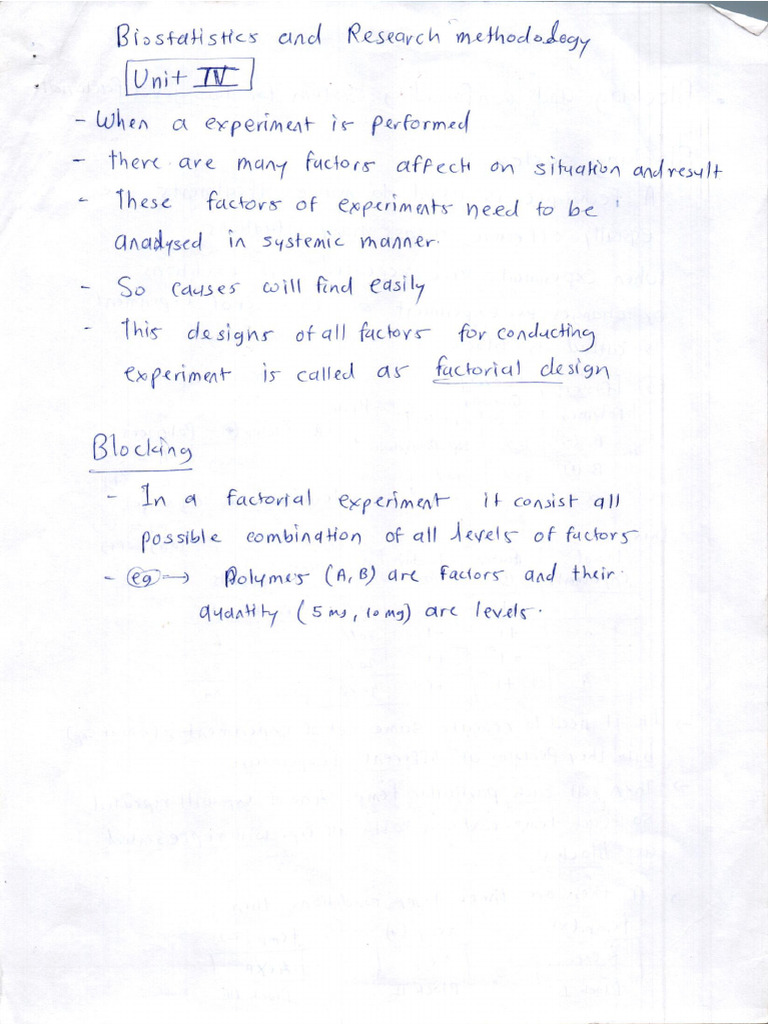 Biostatistics and Research methodology
Unit IV
- When a experiment is performed
- there are many factors affects on situation and result
- These factors of experiments need to be
analysed in systemic manner.
- So causes will find easily
- This designs of all factors for conducting
experiment is called as factorial design
Blocking
- In a factorial experiment it consist all
possible combination of all levels of factors
- eg → Polymers (A, B) are factors and their
quantity (5 mg, 10 mg) are levels.